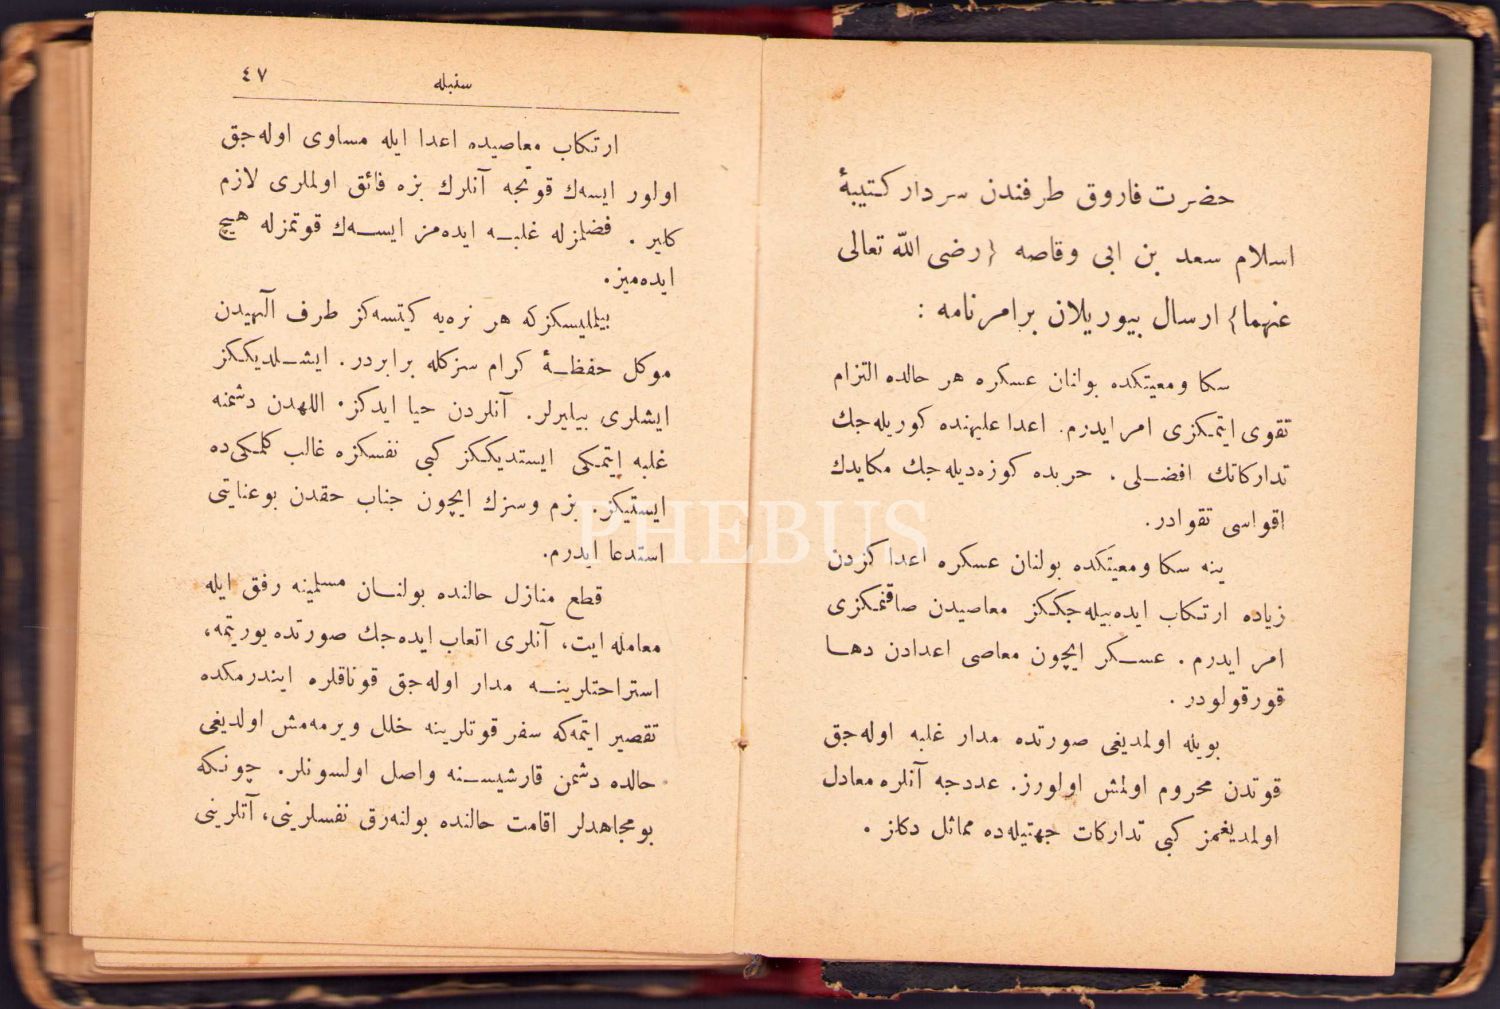 حضرت فاروق طرفندن سردار كتيبهٔ
اسلام سعد بن ابى وقاصه {رضى الله تعالى
عنهما} ارسال بيوريلان برامرنامه :
سكا ومعيتكده بولنان عسكره هر حالده التزام
تقوى ايتمكزى امر ايدرم. اعدا عليهنده كوريله‌جك
تداركاتك افضلى . حربده كوزه‌ديله‌جك مكايدك
اقواسى تقوادر.
ينه سكا ومعيتكده بولنان عسكره اعدا كزدن
زياده ارتكاب ايده‌بيله‌جككز معاصيدن صاقنمكزى
امر ايدرم . عسكر ايچون معاصى اعدادن دها
قورقولودر .
بويله اولمديغى صورتده مدار غلبه اوله‌جق
قوتدن محروم اولمش اولورز. عددجه آنلره معادل
اولمديغمز كبى تداركات جهتيله‌ده مماثل دكلز .
سنبله
٤٧
ارتكاب معاصيده اعدا ايله مساوى اوله‌جق
اولور ايسه‌ك قوتجه آنلرك بزه فائق اولملرى لازم
كلير . فضلمزله غلبه ايده‌مز ايسه‌ك قوتمزله هيچ
ايده‌ميز.
بيلمليسكزكه هر نره‌يه كيتسه‌كز طرف آلهيدن
موكل حفظهٔ كرام سزكله برابردر. ايشلديككز
ايشلرى بيليرلر. آنلردن حيا ايدكز. اللهدن دشمنه
غلبه ايتمكى ايستديككز كبى نفسكزه غالب كلمكى‌ده
ايستيكز. بزم وسزك ايچون جناب حقدن بوعنايتى
استدعا ايدرم.
قطع منازل حالنده بولنان مسلمينه رفق ايله
معامله ايت، آنلرى اتعاب ايده‌جك صورتده يوريتمه،
استراحتلرينه مدار اوله‌جق قوناقلره ايندرمكده
تقصير ايتمه‌كه سفر قوتلرينه خلل ويرمه‌مش اولديغى
حالده دشمن قارشيسنه واصل اولسونلر. چونكه
بومجاهدلر اقامت حالنده بولنه‌رق نفسلرينى، آتلرينى
PHEBUS